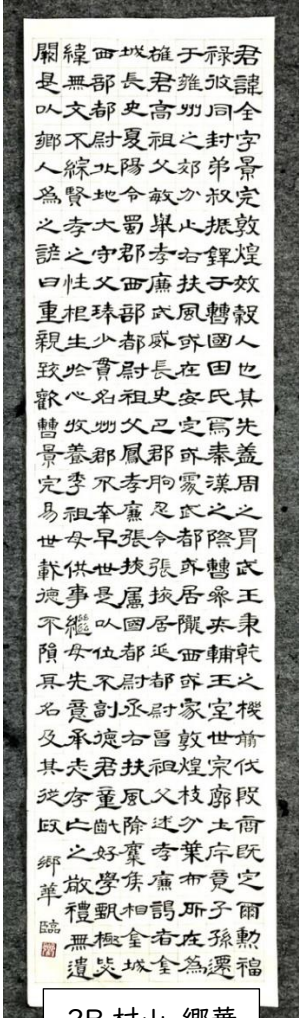 君諱全字景完敦煌效穀人也其先蓋周之胄武王秉乾之機翦伐殷商既定爾勳福
祿攸同封弟叔振鐸于曹國因氏焉秦漢之際曹參夾輔王室世宗廓土斥竟子孫遷
于雍州之郊分止右扶風或在安定或處武都或居隴西或家敦煌枝分葉布所在為
雄君高祖父敏舉孝廉武威長史巴郡朐忍令張掖居延都尉曾祖父述孝廉謁者金
城長史夏陽令蜀郡西部都尉祖父鳳孝廉張掖屬國都尉丞右扶風隃麋侯相金城
西部都尉北地大守父琫少貫名州郡不幸早世是以位不副德君童齔好學甄極毖
緯無文不綜賢孝之性根生於心收養季祖母供事繼母先意承志存亡之敬禮無遺
闕是以鄉人為之諺曰重親致歡曹景完易世載德不隕其名及其從政
郷華 臨
2B 村山 郷華